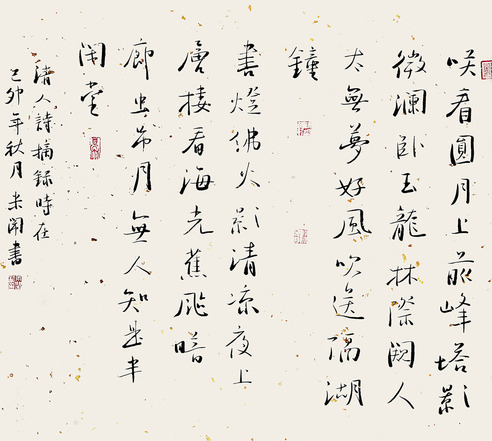 咲看圓月上前峰塔影
微瀾卧玉龍林際闕人
太無夢好風吹送隔湖
鐘
書燈佛火影清涼夜上
層樓看海光蕉飐暗
廊虫吊月無人知是半
閑堂
清人詩摘錄時在
己卯年秋月 米閑書